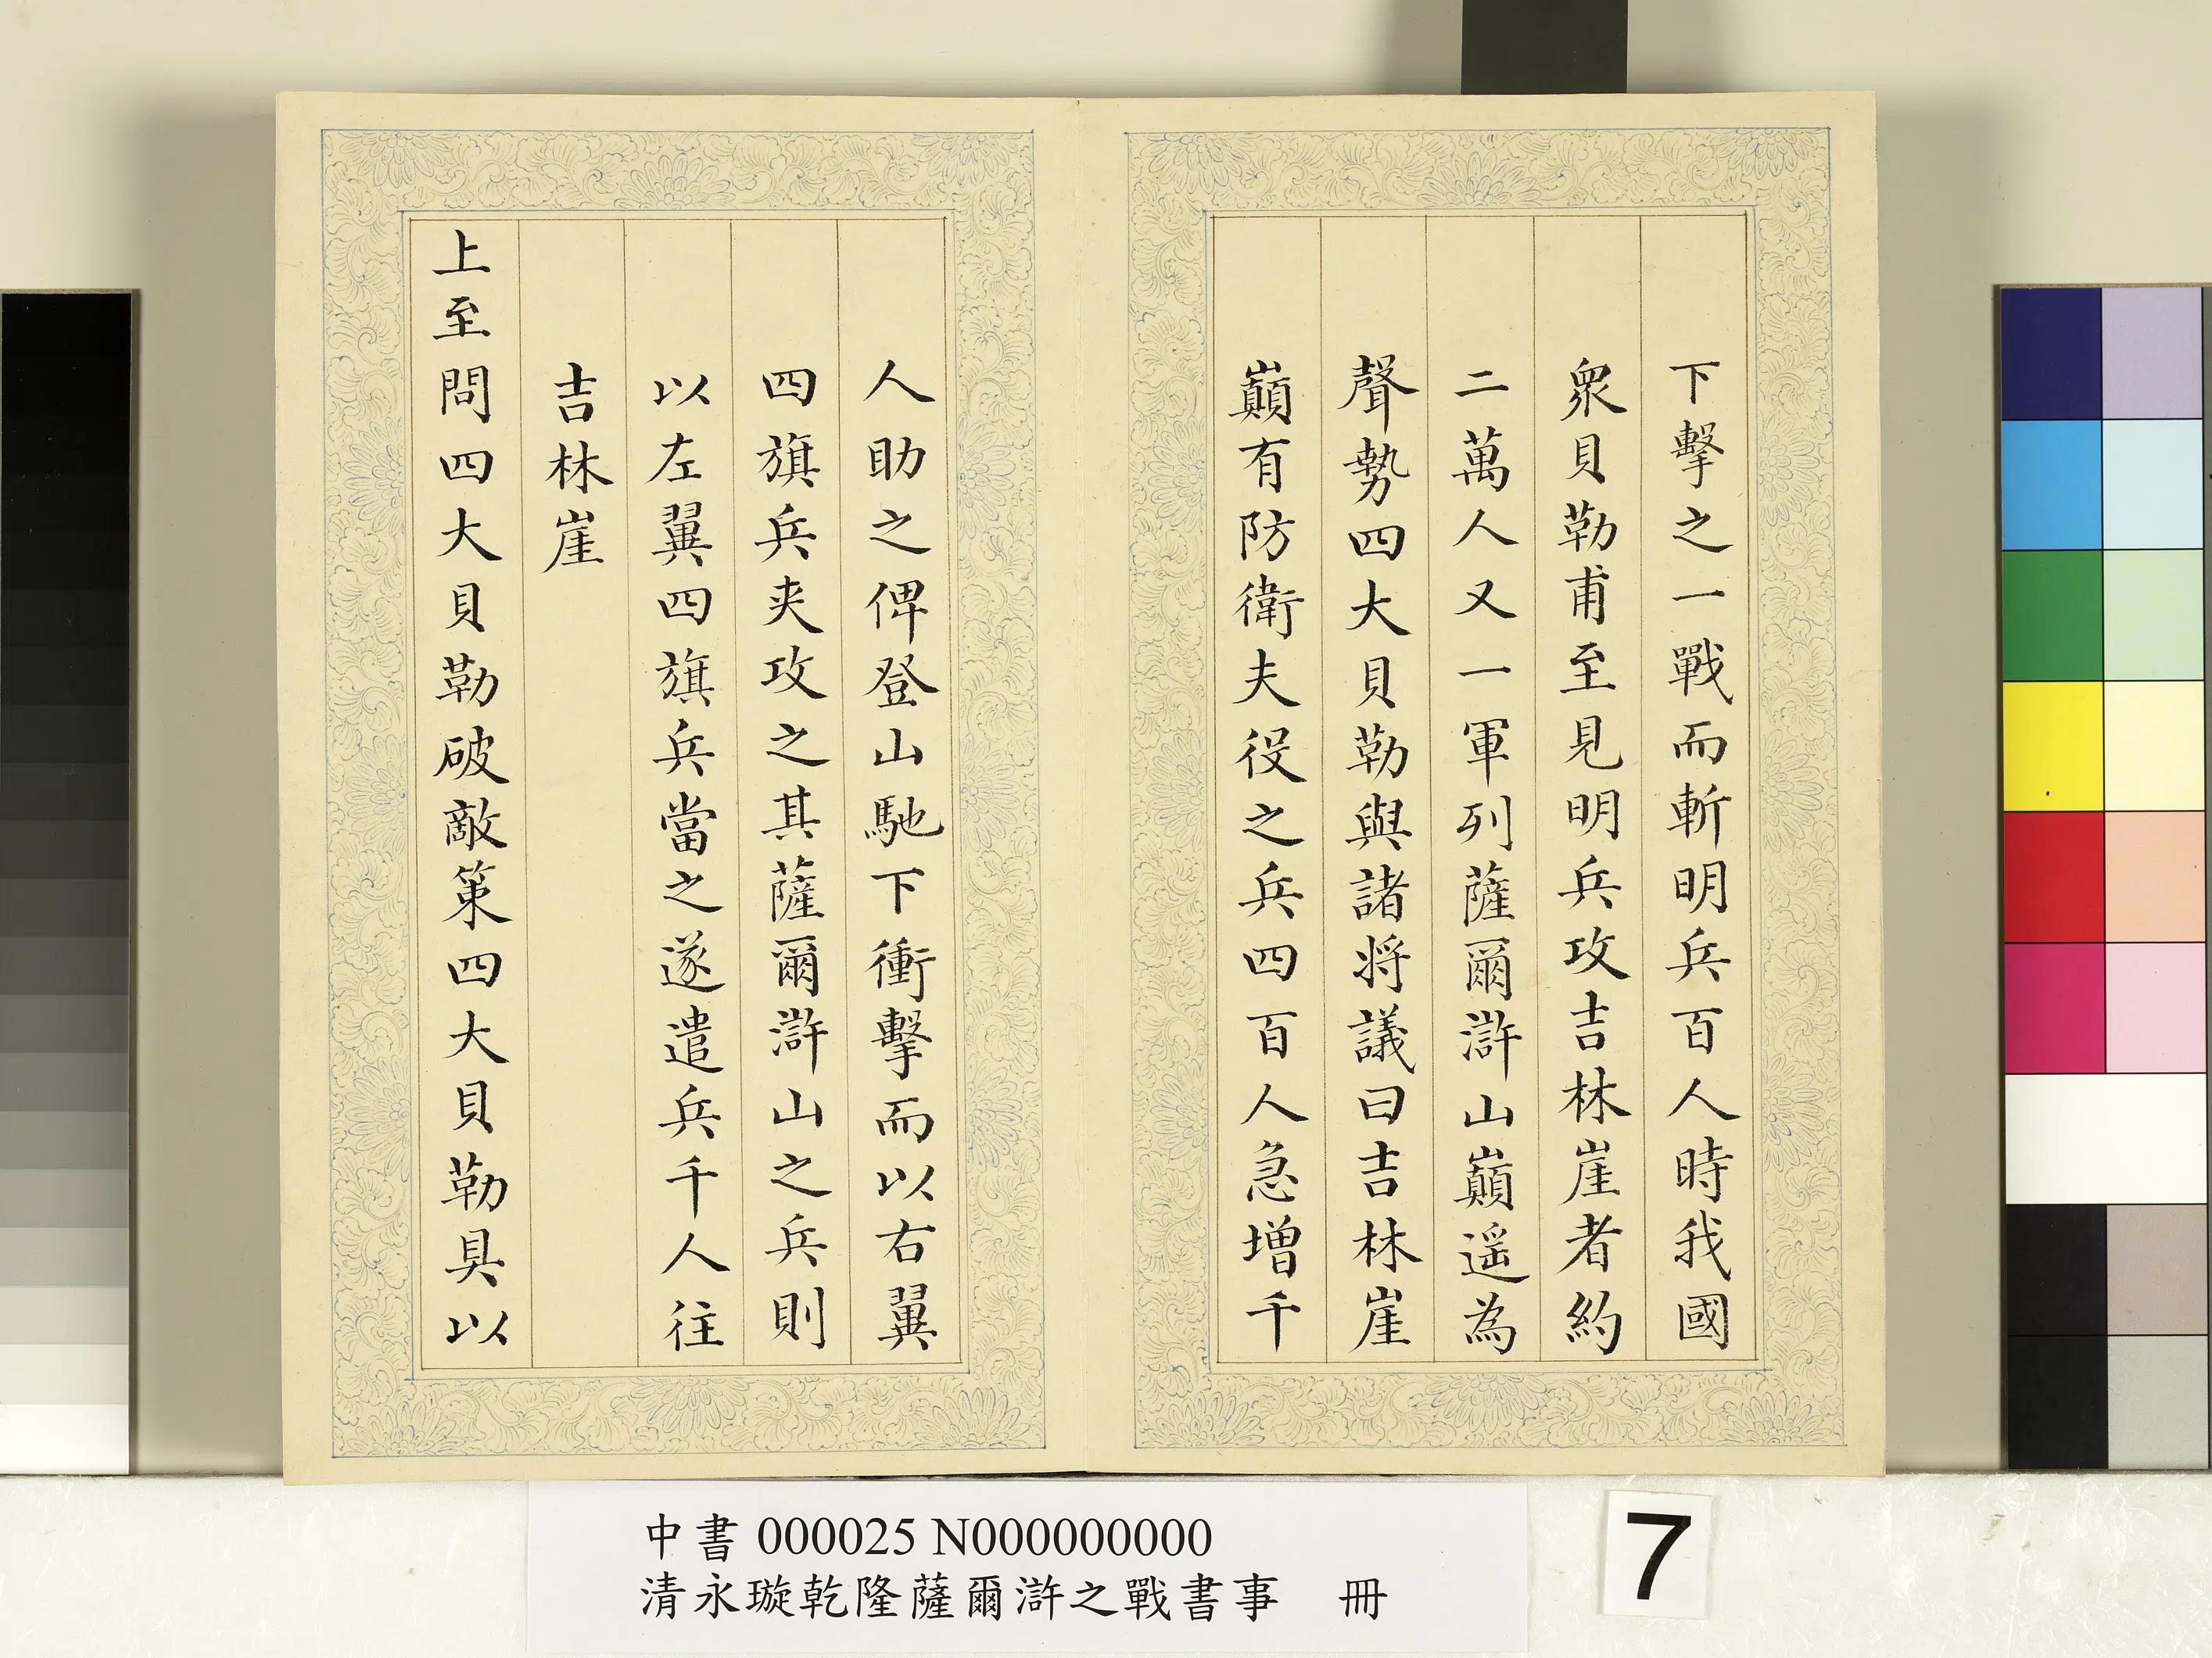 下擊之一戰而斬明兵百人時我國
衆貝勒甫至見明兵攻吉林崖者約
二萬人又一軍列薩爾滸山巔遥為
聲勢四大貝勒與諸将議曰吉林崖
巔有防衛夫役之兵四百人急增千
人助之俾登山馳下衝擊而以右翼
四旗兵夾攻之其薩爾滸山之兵則
以左翼四旗兵當之遂遣兵千人往
吉林崖
上至問四大貝勒破敵策四大貝勒具以
中書 000025 N000000000
清永璇乾隆薩爾滸之戰書事 冊
7